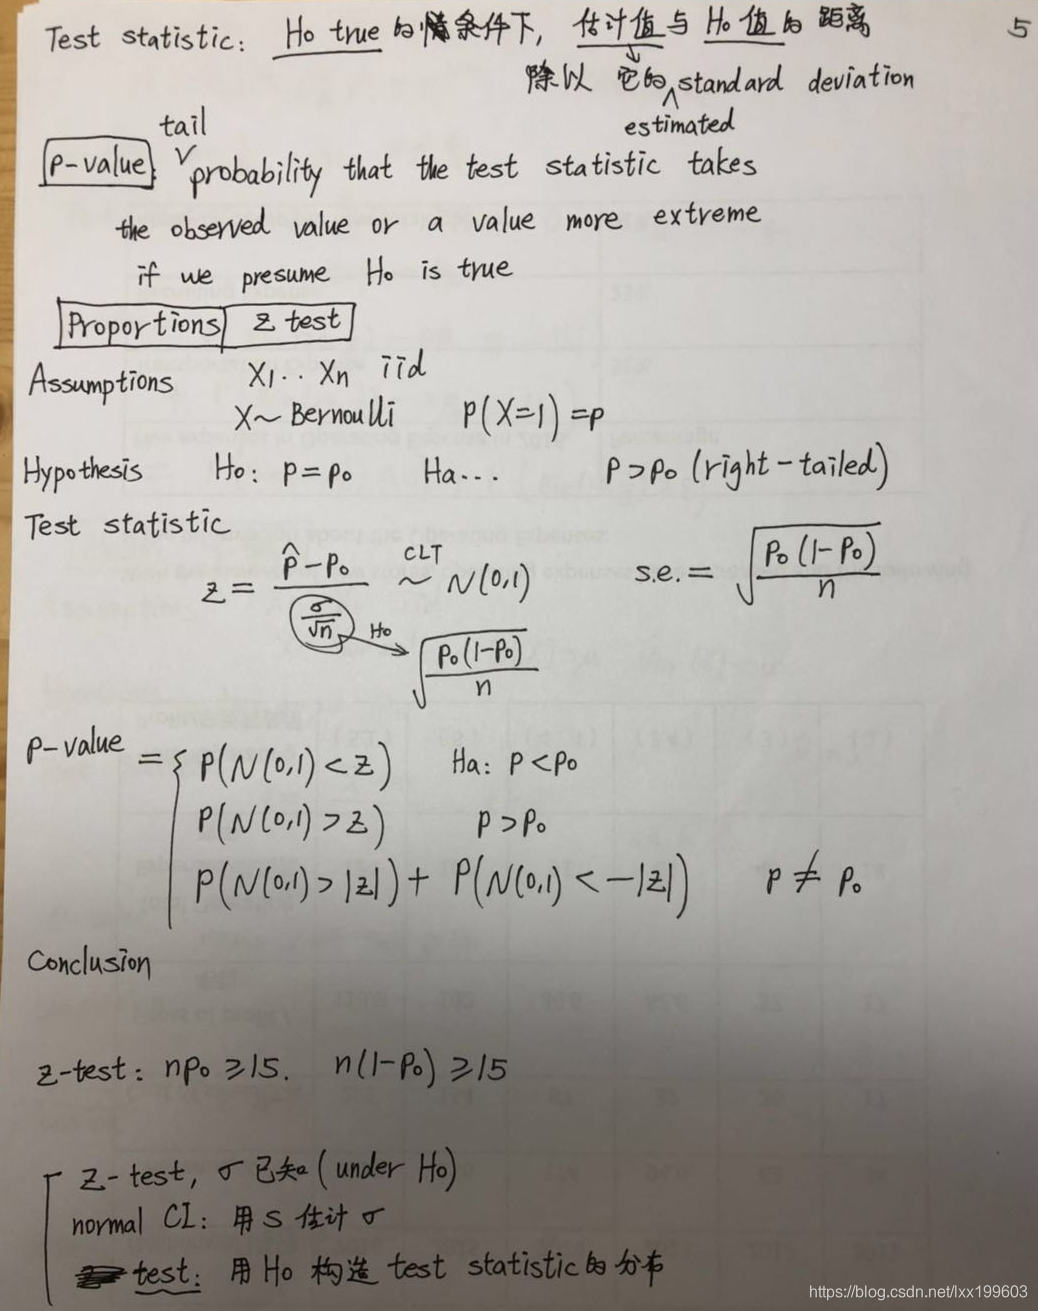 5
Test statistic: Ho true 的条件下, 估计值与 Ho 值的 距离
除以 它的 estimated standard deviation
P-value: tail probability that the test statistic takes
the observed value or a value more extreme
if we presume Ho is true
Proportions z test
Assumptions X1.. Xn iid
X~ Bernoulli P(X=1)=p
Hypothesis Ho: p=po Ha... p>po (right-tailed)
Test statistic
z = (p̂-po)/(σ/√n) CLT ~ N(0,1) s.e.= √(po(1-po)/n)
Ho → √(po(1-po)/n)
p-value = { P(N(0,1)<z) Ha: p<po
P(N(0,1)>z) p>po
P(N(0,1)>|z|)+ P(N(0,1)<-|z|) p≠po
Conclusion
z-test: npo≥15. n(1-po)≥15
z-test, σ已知(under Ho)
normal CI: 用 s 估计 σ
test: 用 Ho 构造 test statistic的分布
https://blog.csdn.net/lxx199603